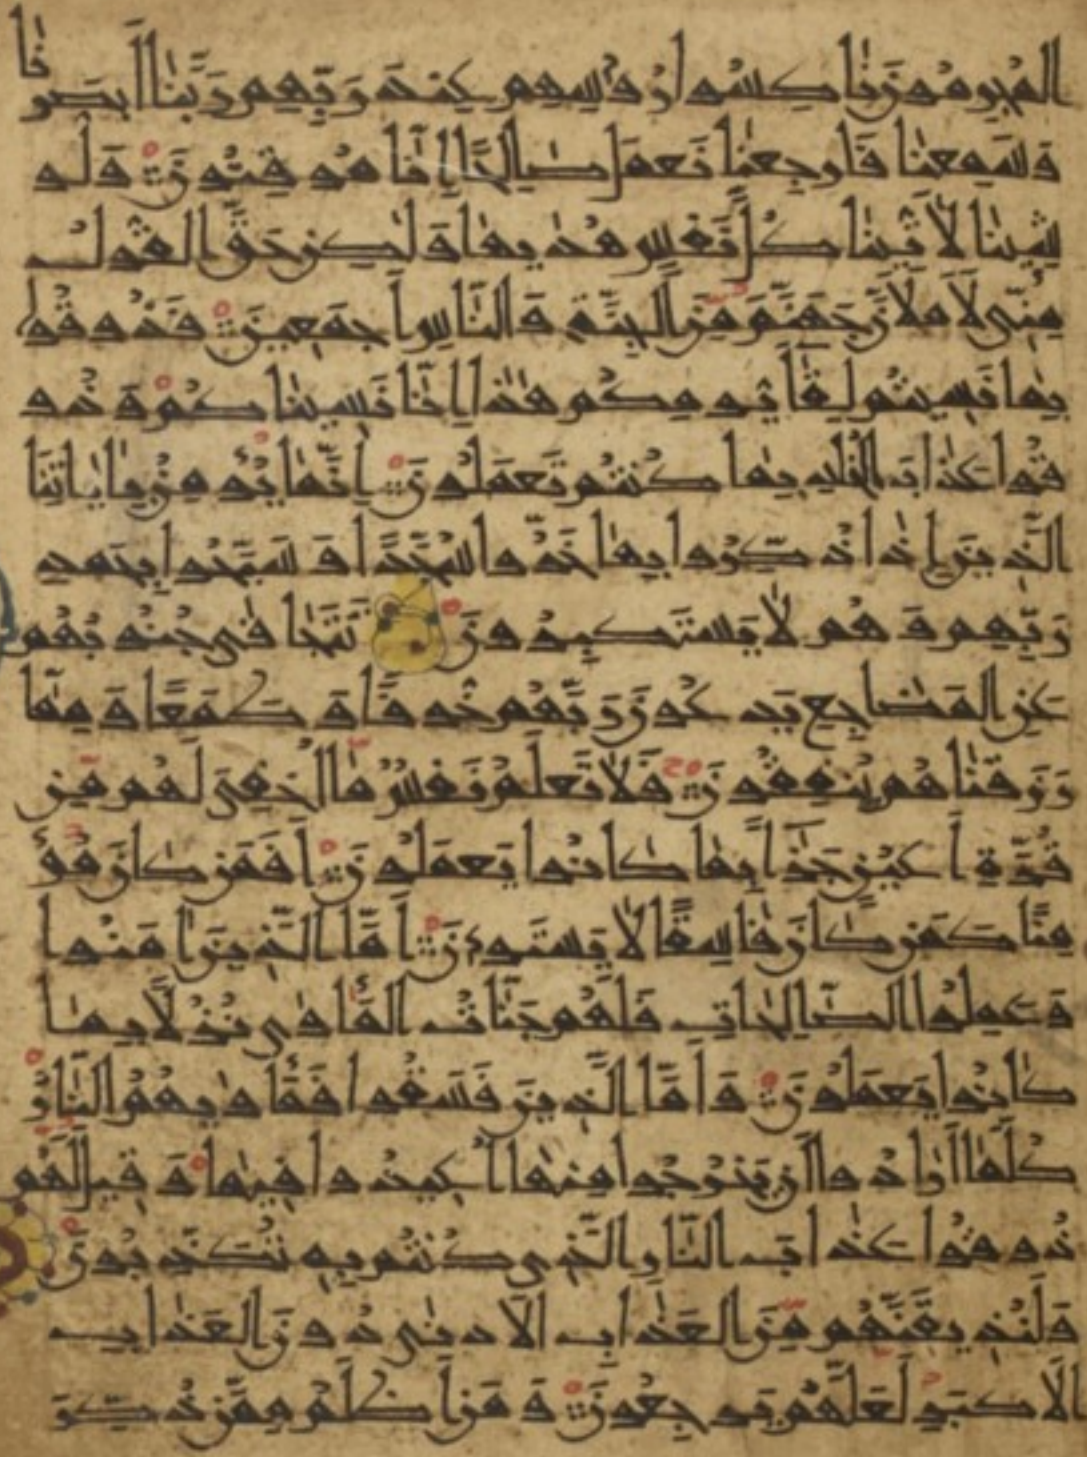 المجرمون ناكسوا رءوسهم عند ربهم ربنا ابصرنا
وسمعنا فارجعنا نعمل صالحا انا موقنون ولو
شئنا لاتينا كل نفس هديها ولكن حق القول
منى لاملان جهنم من الجنة والناس اجمعين فذوقوا
بما نسيتم لقاء يومكم هذا انا نسيناكم وذو
قوا عذاب الخلد بما كنتم تعملون انما يؤمن باياتنا
الذين اذا ذكروا بها خروا سجدا وسبحوا بحمد
ربهم وهم لا يستكبرون تتجافى جنوبهم
عن المضاجع يدعون ربهم خوفا وطمعا ومما
رزقناهم ينفقون فلا تعلم نفس ما اخفى لهم من
قرة اعين جزاء بما كانوا يعملون افمن كان مؤ
منا كمن كان فاسقا لا يستون اما الذين امنوا
وعملوا الصالحات فلهم جنات الماوى نزلا بما
كانوا يعملون واما الذين فسقوا فماويهم النار
كلما ارادوا ان يخرجوا منها اعيدوا فيها وقيل لهم
ذوقوا عذاب النار الذى كنتم به تكذبون
ولنذيقنهم من العذاب الادنى دون العذاب
الاكبر لعلهم يرجعون ومن اظلم ممن ذكر